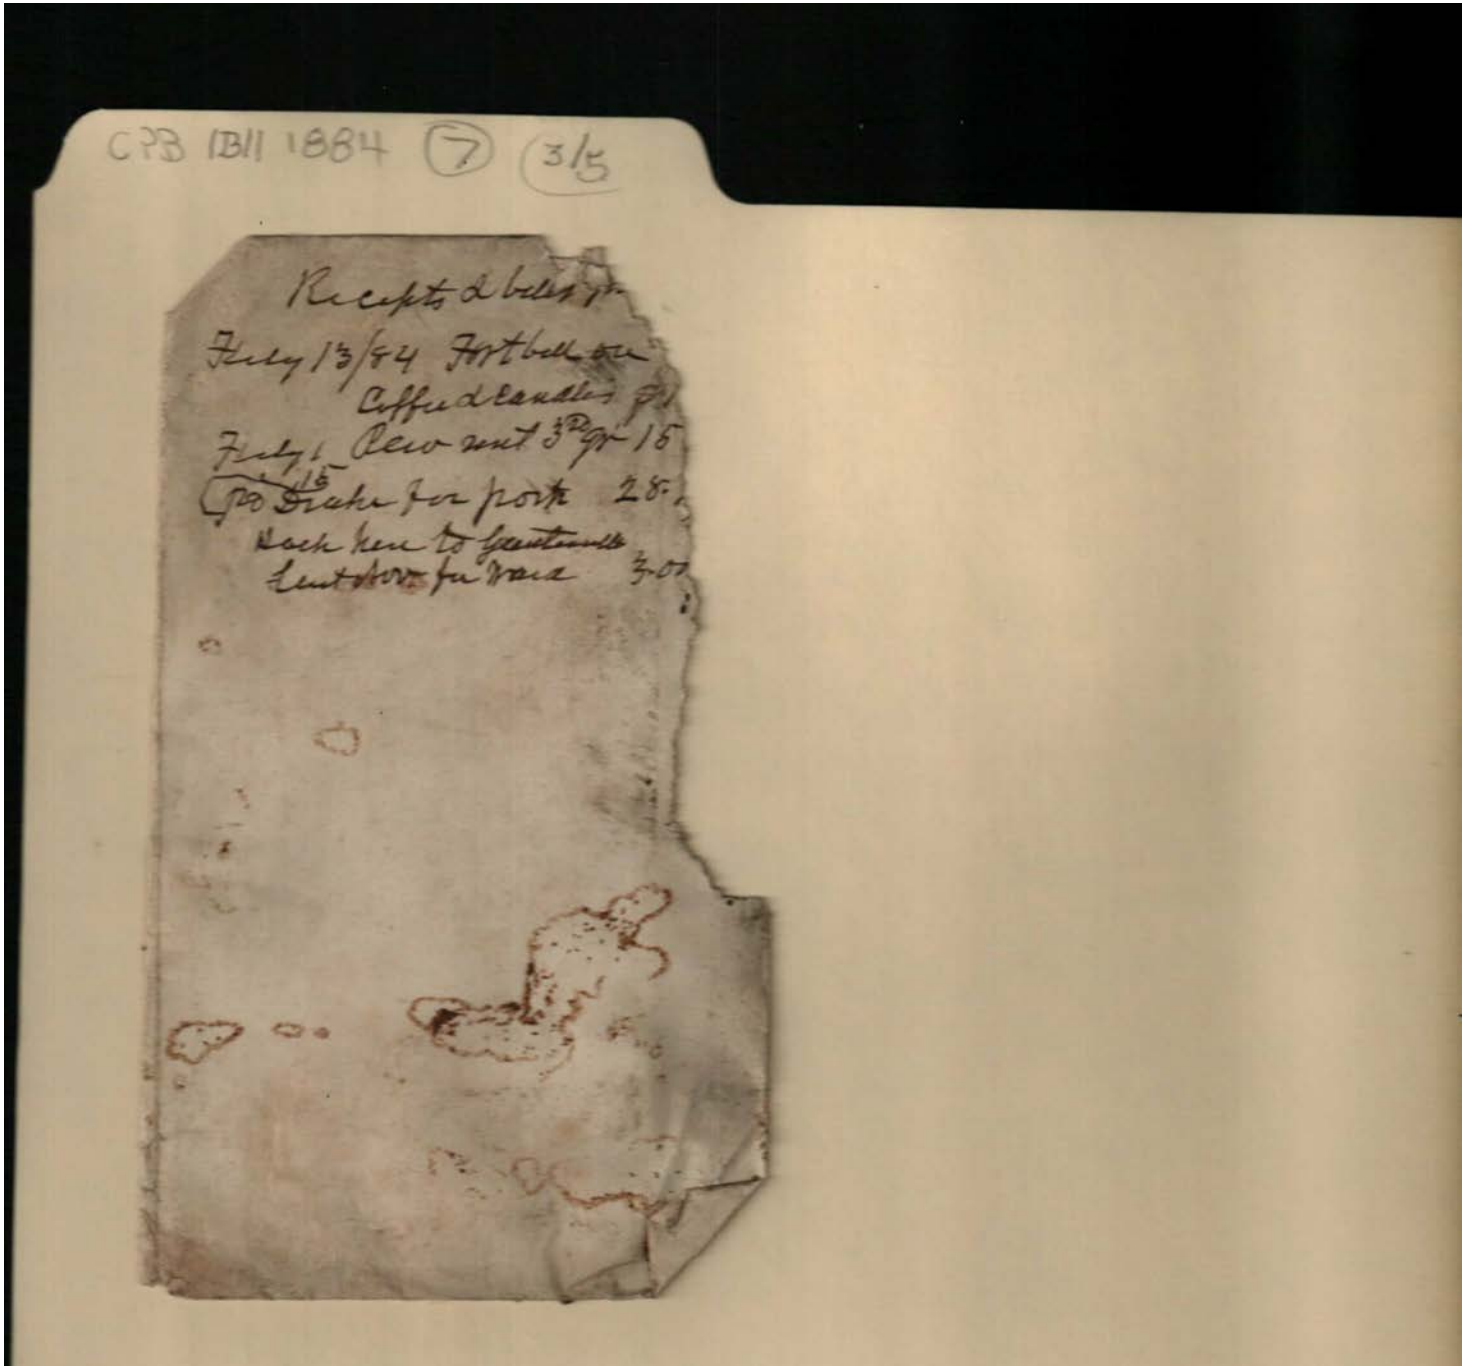 CPB IBII 1884 7 3/5
Recepts & bills
July 13/84 Fort bill on
Coffee & Candles
July 1 Pew rent 3rd qr 15
15
pd Drake for pork 28.
Hack here to
Sent over for 3.00